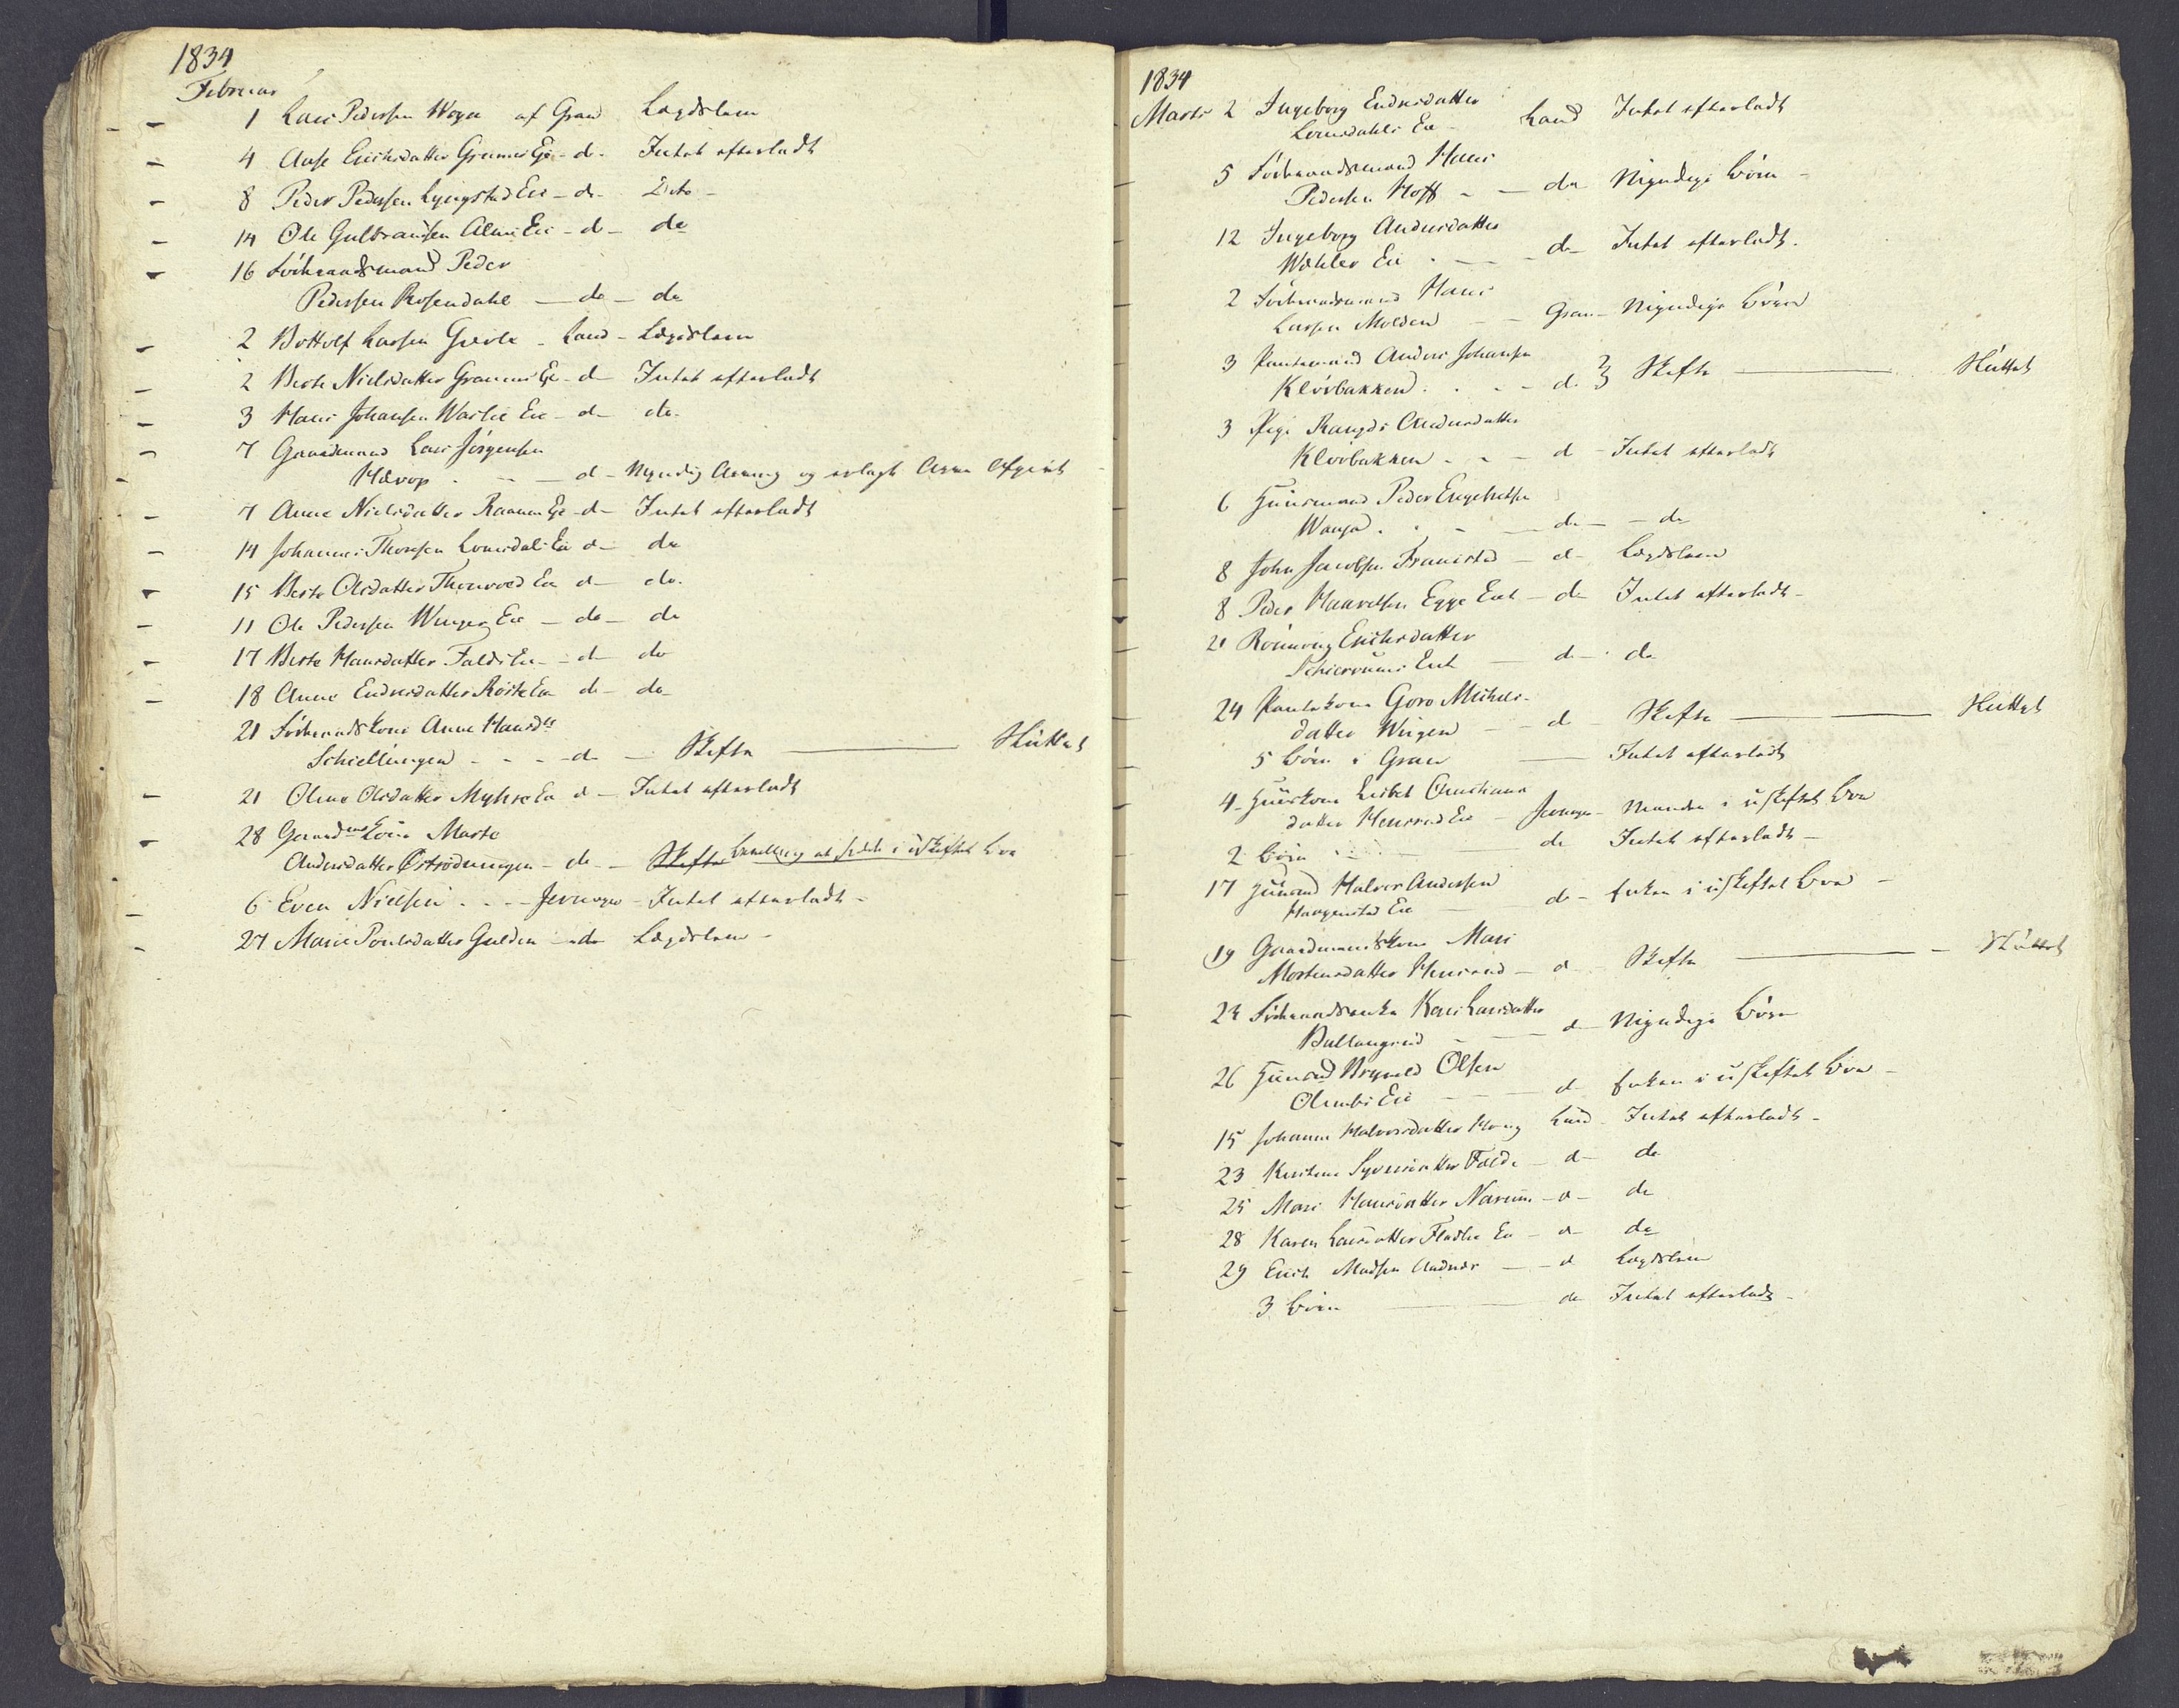 1834
Februar
1 Lars Pedersen Woyen af Gran Lægdslem
4 Aase Erichsdatter Grinnis Eie - do - Intet efterladt
8 Peder Pedersen Lyngstad Eie - do - Dito -
14 Ole Gulbransen Almi Eie - do - do
16 Födraadsmand Peder
Pedersen Rosendahl - do - do
2 Bottolf Larsen - Land - Lægdslem
2 Berte Nielsdatter Eie - do - Intet efterladt
3 Hans Johansen Warlie Eie - do - do
7 Gaardmand Lars Jörgensen
Hærop - - do - Myndig Arving og erlagt Arve Afgivt
7 Anne Nielsdatter Eie - do - Intet efterladt
14 Johannes Thoresen Lomsdals Eie do - do
15 Berte Olsdatter Thomvold Eie do - do
11 Ole Pedersen Wingers Eie - do - do
17 Berte Hansdatter Falds Eie - do do
18 Anne Endresdatter Röste Eie do - do
21 Födraadskone Anne Hansdtr
Schiellingen - - - do - Skifte ——— Sluttet
21 Oline Olsdatter Myhre Eie do - Intet efterladt
28 Gaardmkone Marte
Andersdatter Öströdningen - do - Skifte Bevilling at sidde i uskiftet Boe
6 Even Nielsen - - - Jevnager - Intet efterladt -
27 Marie Poulsdatter Gulden - do Lægdslem -
1834
Marts 2 Ingeborg Endresdatter
Lomsdahls Eie - Land Intet efterladt
5 Födraadsmand Hans
Pedersen Hoff - - do Myndige Börn -
12 Ingeborg Andersdatter
Wæhler Eie - - do - Intet efterladt.
2 Födraadsmand Hans
Larsen Molden - - Gran - Myndige Börn
3 Pantemand Anders Johansen
Klövbakken - - - do } Skifte ——— Sluttet
3 Pige Rangdi Andersdatter
Klövbakken - - - do - Intet efterladt
6 Huusmand Peder Engebretsen
Wanga - - - do - - do
8 John Jacobsen Framstad - do - Lægdslem
8 Peder Haavelsen Egge Eie - do Intet efterladt -
21 Rönnoug Erichsdatter
Schiervums Eie - do - do
24 Pantekone Goro Michels-
datter Wingen - - do - Skifte ——— Sluttet
5 Börn i Gran — Intet efterladt
4 Huuskone Lisbet Christians
datter Hensrud Eie - Jevnager - Manden i uskiftet Boe
2 Börn - - do Intet efterladt -
17 Huusmd Halvor Andersen
Haagenstad Eie — do - Enken i uskiftet Boe -
19 Gaardmandskone Mari
Mortensdatter Hensrud - do - Skifte ——— - Sluttet
24 Födraadsenke Kari Larsdatter
Ballangrud - - do - Myndige Börn
26 Huusmd Brynild Olsen
Olimbs Eie - - do Enken i uskiftet Boe -
15 Johanne Halvorsdatter Houg Land - Intet efterladt -
23 Kirstine Syversdatter Falde - do - do
25 Mari Hansdatter Narum - do - do
28 Karen Larsdatter Fladlie Eie - do - do
29 Erich Madsen - - do Lægdslem
3 Börn ——— do Intet efterladt -